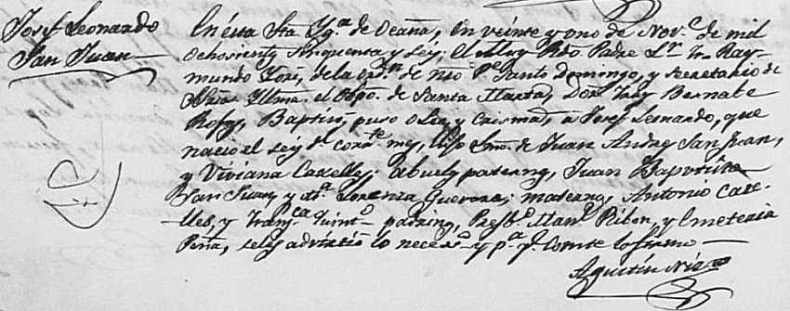 Josef Leonardo
San Juan
En ésta Sta. Ygª. de Ocaña, en veinte y uno de Novᵉ. de mil
Ochosients sinquenta y seiz, el Muy Rdo Padre Fr.
mundo de la ordⁿ. de Nro Pᵉ. Santo Domingo, y secretario de
Yltma. el Obpo. de Santa Marta, Don Fray Bernabé
Rojas, Baptisó, puso oleo, y Crisma, á Josef Leonardo, que
nacio el seiz dl. corrᵗᵉ. mes, hijo lmo. de Juan Andres San Juan,
y Viviana Caselles; abuelos paternos, Juan Bapᵗⁱˢᵗᵃ
San Juan, y Lorenza Guerrera; maternos, Antonio Case-
lles, y Franᶜᵃ. padrinos, Presbº. Manˡ. Riben, y Emeteria
Peña, seles advirtió lo necesº. y pª. qᵉ. conste lo firmo
Agustin